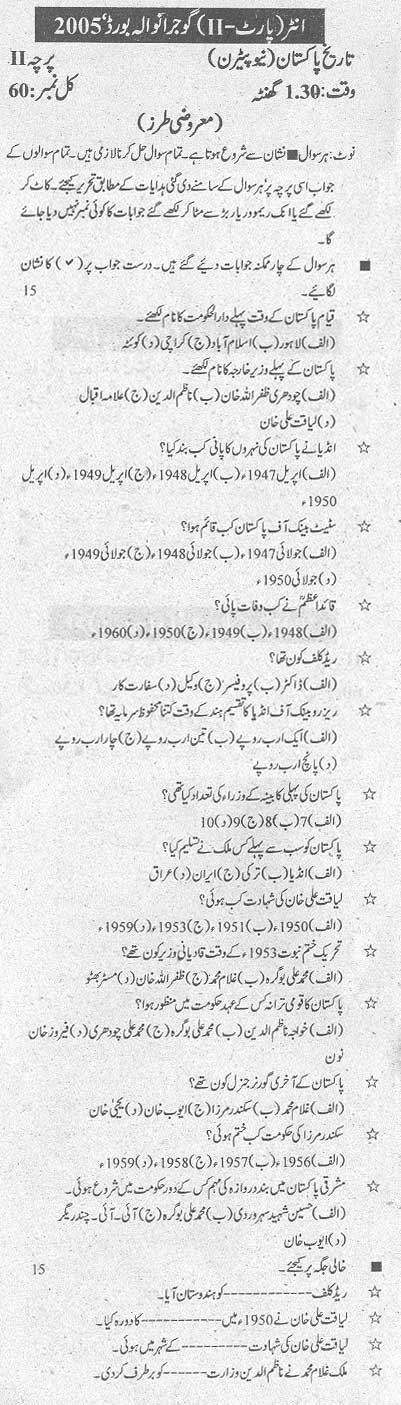 انٹر (پارٹ-II) گوجرانوالہ بورڈ، 2005ء
تاریخ پاکستان (نیو پیٹرن) پرچہ II
وقت: 1.30 گھنٹہ کل نمبر: 60
(معروضی طرز)
نوٹ: ہر سوال ■ نشان سے شروع ہوتا ہے۔ تمام سوال حل کرنا لازمی ہیں۔ تمام سوالوں کے
جواب اسی پرچہ پر ہر سوال کے سامنے دی گئی ہدایات کے مطابق تحریر کیجئے۔ کاٹ کر
لکھے گئے یا انک ریموور یا ربڑ سے مٹا کر لکھے گئے جوابات کا کوئی نمبر نہیں دیا جائے
گا۔
■ ہر سوال کے چار ممکنہ جوابات دیئے گئے ہیں۔ درست جواب پر (✓) کا نشان
لگائیے۔ 15
☆ قیام پاکستان کے وقت پہلے دارالحکومت کا نام لکھئے۔
(الف) لاہور (ب) اسلام آباد (ج) کراچی (د) کوئٹہ
☆ پاکستان کے پہلے وزیر خارجہ کا نام لکھئے۔
(الف) چودھری ظفر اللہ خان (ب) ناظم الدین (ج) علامہ اقبال
(د) لیاقت علی خان
☆ انڈیا نے پاکستان کی نہروں کا پانی کب بند کیا؟
(الف) اپریل 1947ء (ب) اپریل 1948ء (ج) اپریل 1949ء (د) اپریل
1950ء
☆ سٹیٹ بینک آف پاکستان کب قائم ہوا؟
(الف) جولائی 1947ء (ب) جولائی 1948ء (ج) جولائی 1949ء
(د) جولائی 1950ء
☆ قائداعظمؒ نے کب وفات پائی؟
(الف) 1948ء (ب) 1949ء (ج) 1950ء (د) 1960ء
☆ ریڈ کلف کون تھا؟
(الف) ڈاکٹر (ب) پروفیسر (ج) وکیل (د) سفارت کار
☆ ریزرو بینک آف انڈیا کا تقسیم ہند کے وقت کتنا محفوظ سرمایہ تھا؟
(الف) ایک ارب روپے (ب) تین ارب روپے (ج) چار ارب روپے
(د) پانچ ارب روپے
☆ پاکستان کی پہلی کابینہ کے وزراء کی تعداد کیا تھی؟
(الف) 7 (ب) 8 (ج) 9 (د) 10
☆ پاکستان کو سب سے پہلے کس ملک نے تسلیم کیا؟
(الف) انڈیا (ب) ترکی (ج) ایران (د) عراق
☆ لیاقت علی خان کی شہادت کب ہوئی؟
(الف) 1950ء (ب) 1951ء (ج) 1953ء (د) 1959ء
☆ تحریک ختم نبوت 1953ء کے وقت قادیانی وزیر کون تھے؟
(الف) محمد علی بوگرہ (ب) غلام محمد (ج) ظفر اللہ خان (د) مسٹر بھٹو
☆ پاکستان کا قومی ترانہ کس کے عہد حکومت میں منظور ہوا؟
(الف) خواجہ ناظم الدین (ب) محمد علی بوگرہ (ج) محمد علی چودھری (د) فیروز خان
نون
☆ پاکستان کے آخری گورنر جنرل کون تھے؟
(الف) غلام محمد (ب) سکندر مرزا (ج) ایوب خان (د) یحییٰ خان
☆ سکندر مرزا کی حکومت کب ختم ہوئی؟
(الف) 1956ء (ب) 1957ء (ج) 1958ء (د) 1959ء
☆ مشرقی پاکستان میں بند دروازہ کی مہم کس کے دور حکومت میں شروع ہوئی۔
(الف) حسین شہید سہروردی (ب) محمد علی بوگرہ (ج) آئی۔ آئی۔ چندریگر
(د) ایوب خان
■ خالی جگہ پر کیجئے۔ 15
☆ ریڈ کلف ------------ کو ہندوستان آیا۔
☆ لیاقت علی خان نے 1950ء میں ----------- کا دورہ کیا۔
☆ لیاقت علی خان کی شہادت --------- کے شہر میں ہوئی۔
☆ ملک غلام محمد نے ناظم الدین وزارت ------ کو برطرف کر دی۔